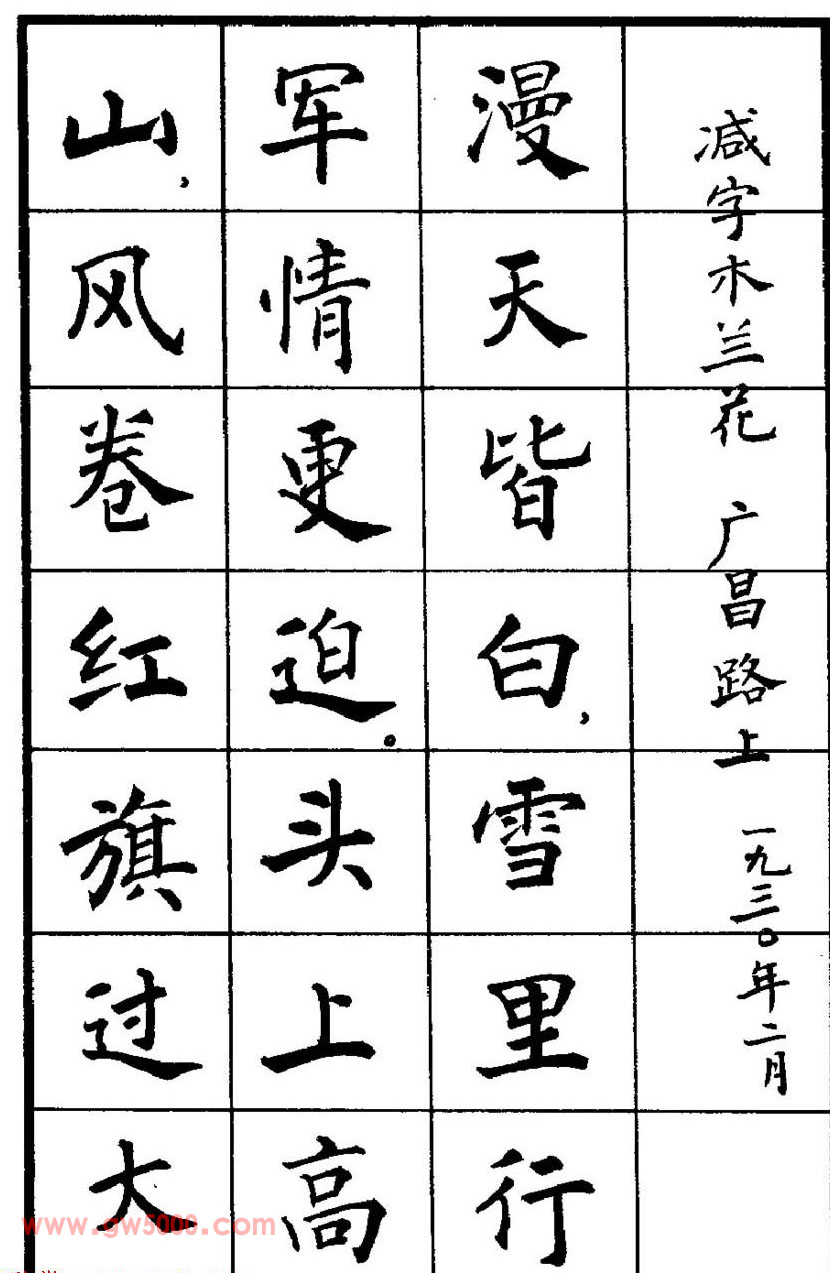 减字木兰花 广昌路上 一九三〇年二月
漫天皆白,雪里行
军情更迫。头上高
山,风卷红旗过大
www.gw5000.com